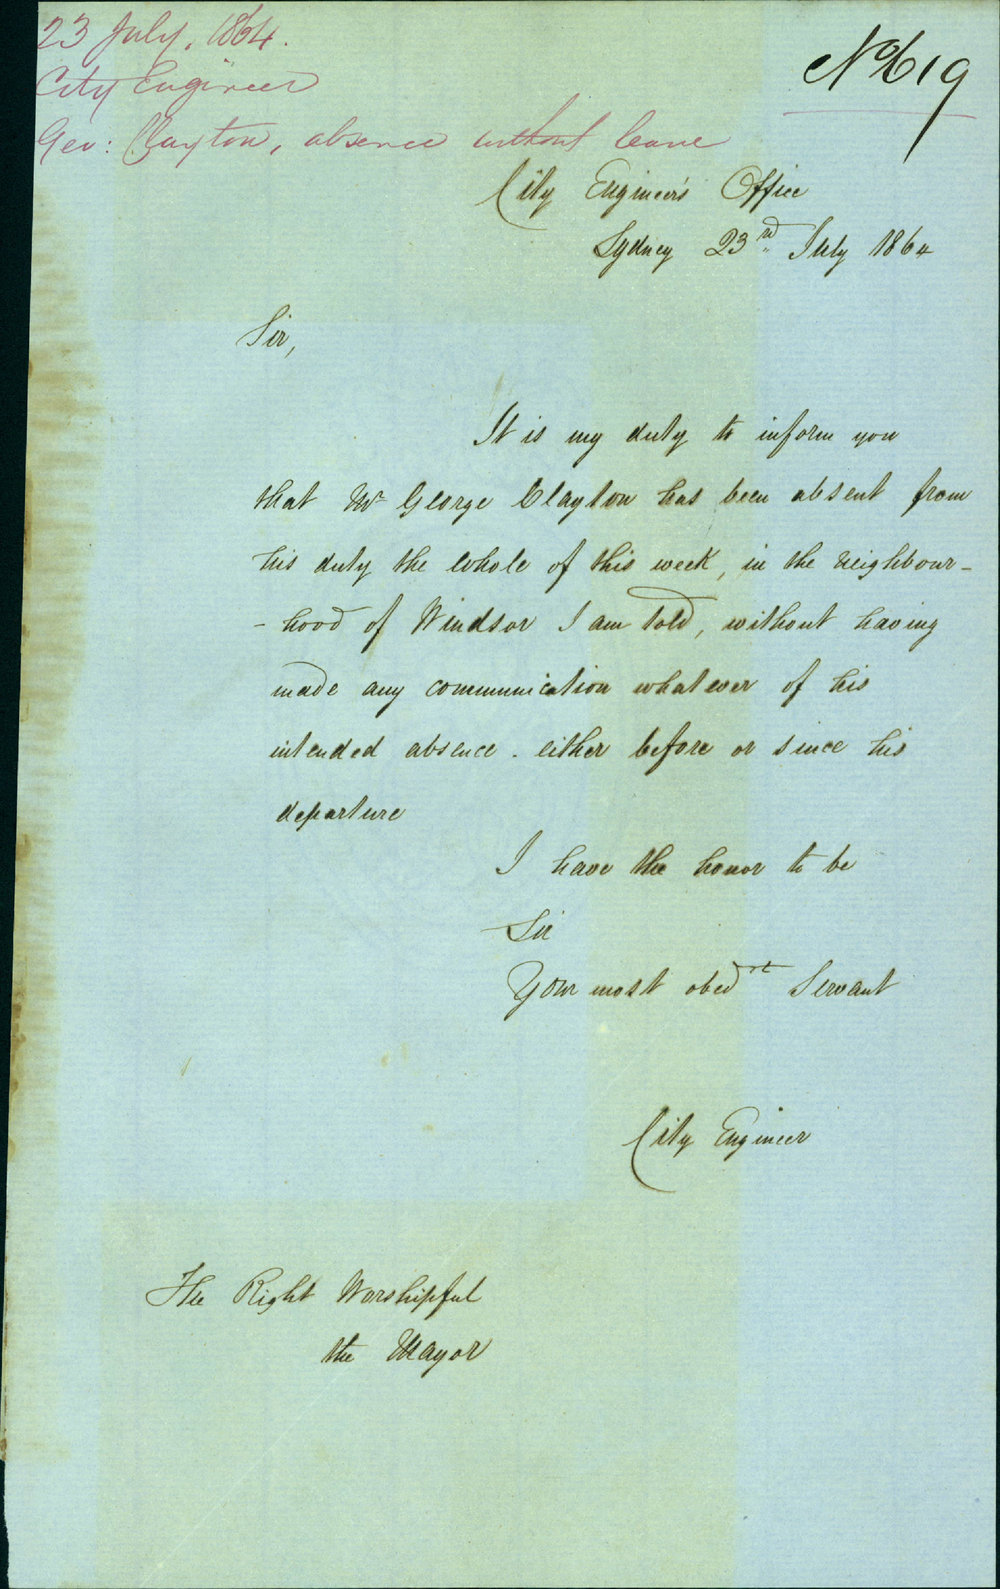 23 July, 1864.
City Engineer
Geo: Clayton, absence without leave
No 619
City Engineer's Office
Sydney 23rd July 1864
Sir,
It is my duty to inform you
that Mr George Clayton has been absent from
his duty the whole of this week, in the neighbour-
-hood of Windsor I am told, without having
made any communication whatever of his
intended absence - either before or since his
departure
I have the honor to be
Sir
Your most obedt Servant
City Engineer
The Right Worshipful
the Mayor